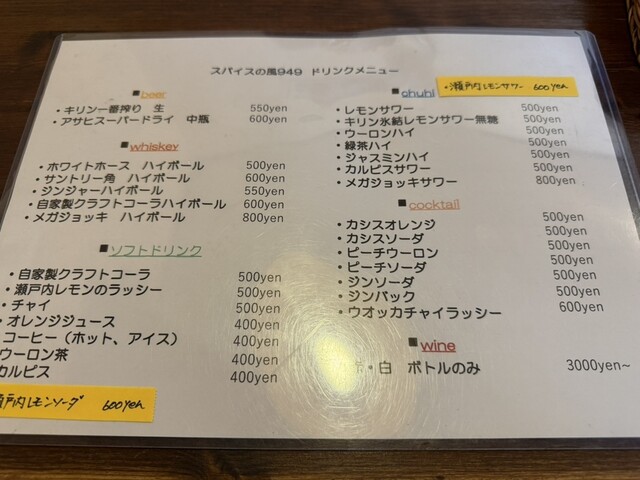 スパイスの風949 ドリンクメニュー
■beer
・キリン一番搾り 生 550yen
・アサヒスーパードライ 中瓶 600yen
■whiskey
・ホワイトホース ハイボール 500yen
・サントリー角 ハイボール 600yen
・ジンジャーハイボール 550yen
・自家製クラフトコーラハイボール 600yen
・メガジョッキ ハイボール 800yen
■ソフトドリンク
・自家製クラフトコーラ 500yen
・瀬戸内レモンのラッシー 500yen
・チャイ 500yen
・オレンジジュース 400yen
コーヒー（ホット、アイス） 400yen
ウーロン茶 400yen
カルピス 400yen
瀬戸内レモンソーダ 600yen
■chuhi
・瀬戸内レモンサワー 600yen
・レモンサワー 500yen
・キリン氷結レモンサワー無糖 500yen
・ウーロンハイ 500yen
・緑茶ハイ 500yen
・ジャスミンハイ 500yen
・カルピスサワー 500yen
・メガジョッキサワー 800yen
■cocktail
・カシスオレンジ 500yen
・カシスソーダ 500yen
・ピーチウーロン 500yen
・ピーチソーダ 500yen
・ジンソーダ 500yen
・ジンバック 500yen
・ウオッカチャイラッシー 600yen
■wine
赤・白 ボトルのみ 3000yen~